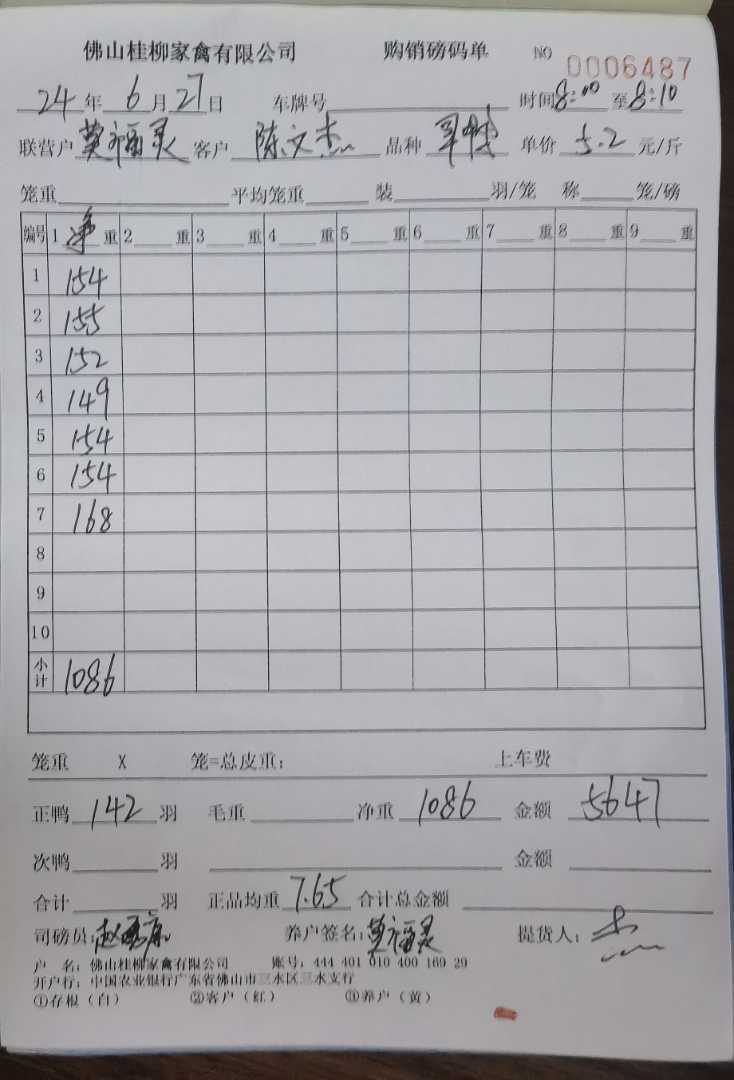 佛山桂柳家禽有限公司 购销磅码单 NO 0006487
24年6月27日 车牌号 时间8:00至8:10
联营户 莫福灵 客户 陈文杰 品种 单价 5.2 元/斤
笼重 平均笼重 装 羽/笼 称 笼/磅
编号 1 净 重 2 重 3 重 4 重 5 重 6 重 7 重 8 重 9 重
1 154
2 155
3 152
4 149
5 154
6 154
7 168
8
9
10
小计 1086
笼重 X 笼=总皮重: 上车费
正鸭 142 羽 毛重 净重 1086 金额 5647
次鸭 羽 金额
合计 羽 正品均重 7.65 合计总金额
司磅员: 养户签名: 莫福灵 提货人: 杰
户 名: 佛山桂柳家禽有限公司 账号: 444 401 010 400 169 29
开户行: 中国农业银行广东省佛山市三水区三水支行
①存根(白) ②客户(红) ③养户(黄)